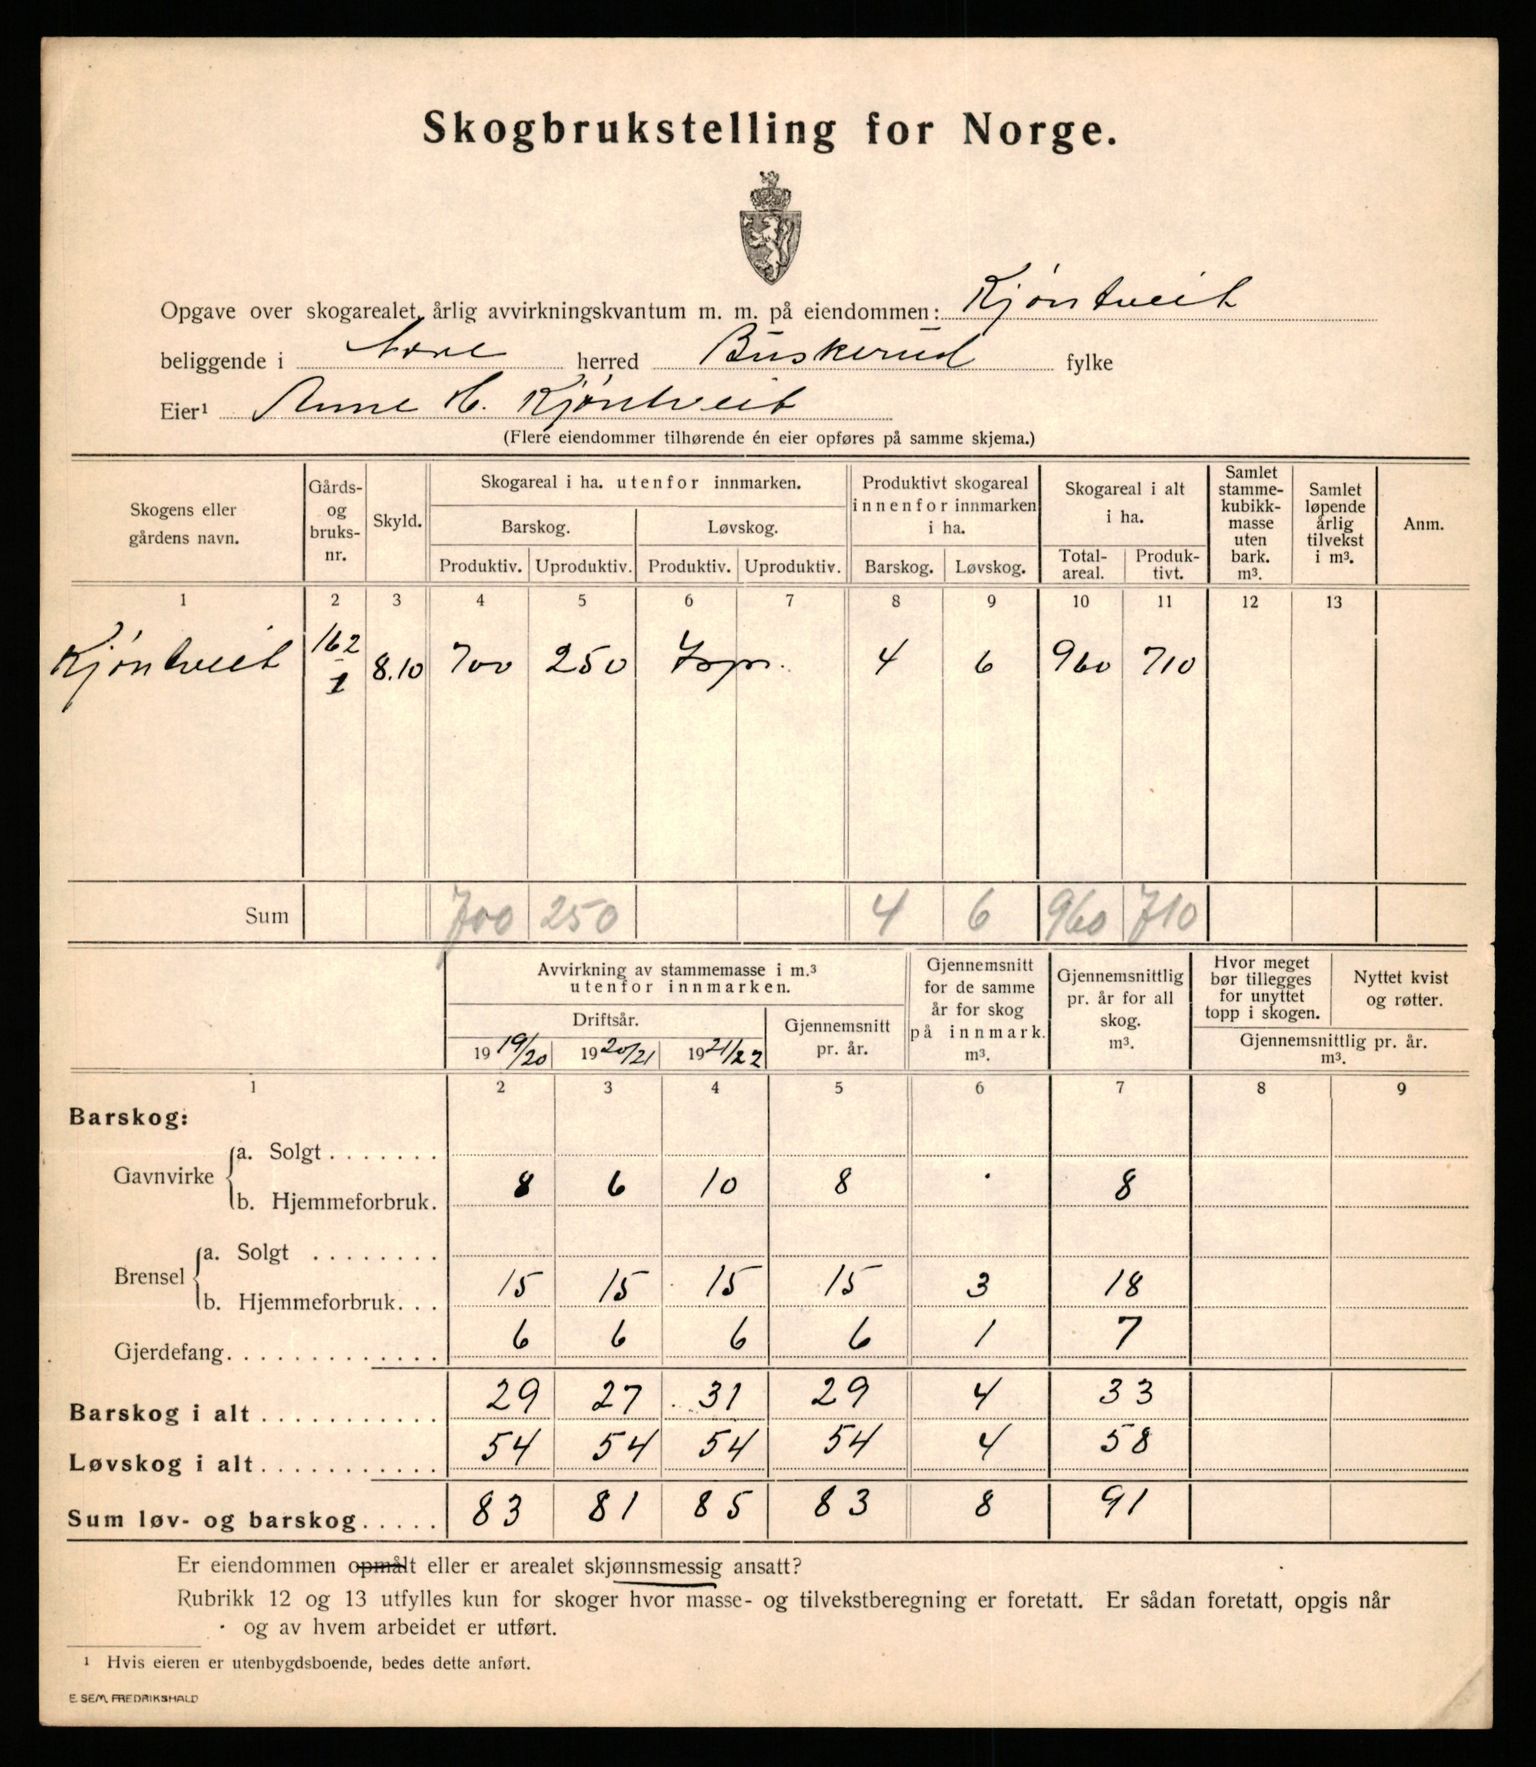 Skogbrukstelling for Norge.
Opgave over skogarealet, årlig avvirkningskvantum m. m. på eiendommen: Kjöntveit
beliggende i Nore herred Buskerud fylke
Eier¹ Anne H. Kjöntveit
(Flere eiendommer tilhørende én eier opføres på samme skjema.)
Skogens eller gårdens navn. Gårds- og bruks- nr. Skyld. Skogareal i ha. utenfor innmarken. Produktivt skogareal innenfor innmarken i ha. Skogareal i alt i ha. Samlet stamme- kubikk- masse uten bark. m³. Samlet løpende årlig tilvekst i m³. Anm.
Barskog. Løvskog.
Produktiv. Uproduktiv. Produktiv. Uproduktiv. Barskog. Løvskog. Total- areal. Produk- tivt.
1 2 3 4 5 6 7 8 9 10 11 12 13
Kjöntveit 162/1 8.10 700 250 4 6 960 710
Sum 700 250 4 6 960 710
Avvirkning av stammemasse i m.³ utenfor innmarken. Gjennemsnitt for de samme år for skog på innmark. m³. Gjennemsnittlig pr. år for all skog. m³. Hvor meget bør tillegges for unyttet topp i skogen. Nyttet kvist og røtter.
Driftsår. Gjennemsnitt pr. år. Gjennemsnittlig pr. år. m³.
19 19/20 19 20/21 19 21/22
1 2 3 4 5 6 7 8 9
Barskog:
Gavnvirke
a. Solgt . . . . . . .
b. Hjemmeforbruk. 8 6 10 8 · 8
Brensel
a. Solgt . . . . . . .
b. Hjemmeforbruk. . . 15 15 15 15 3 18
Gjerdefang. . . . . . . . . . . . . 6 6 6 6 1 7
Barskog i alt . . . . . . . . . . . 29 27 31 29 4 33
Løvskog i alt . . . . . . . . . . . 54 54 54 54 4 58
Sum løv- og barskog. . . . . 83 81 85 83 8 91
Er eiendommen opmålt eller er arealet skjønnsmessig ansatt?
Rubrikk 12 og 13 utfylles kun for skoger hvor masse- og tilvekstberegning er foretatt. Er sådan foretatt, opgis når
og av hvem arbeidet er utført.
¹ Hvis eieren er utenbygdsboende, bedes dette anført.
E. SEM, FREDRIKSHALD